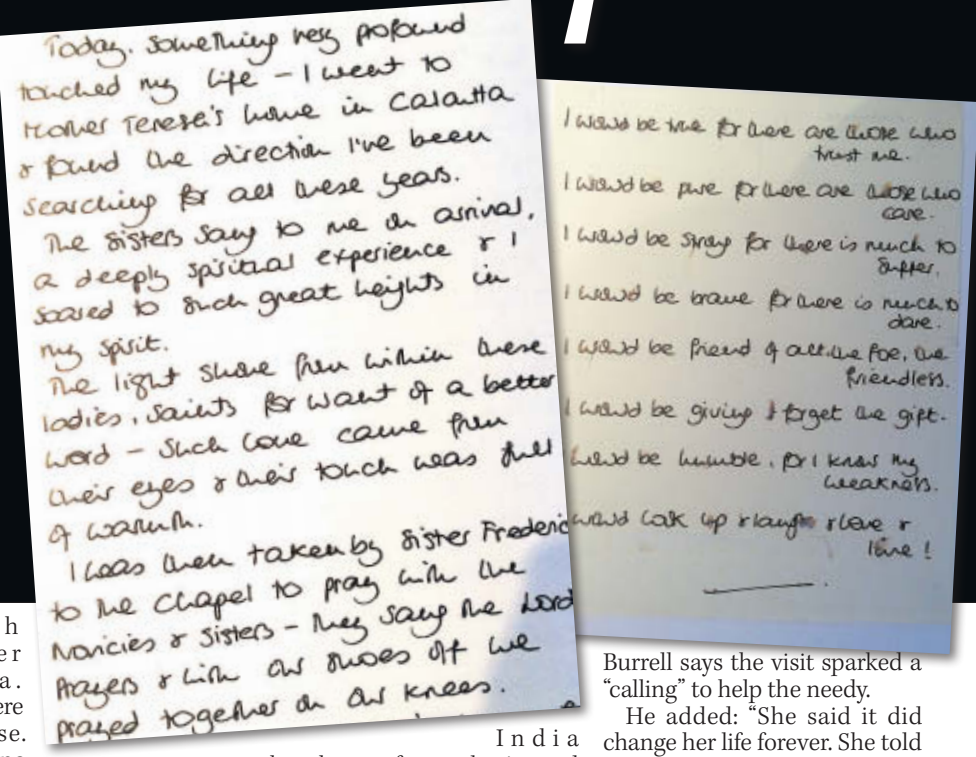 Today. Something very profound
touched my life – I went to
Mother Teresa's home in Calcutta
& found the direction I've been
searching for all these years.
The Sisters sang to me on arrival,
a deeply spiritual experience & I
soared to such great heights in
my spirit.
The light shone from within these
ladies, saints for want of a better
word – Such love came from
their eyes & their touch was full
of warmth.
I was then taken by Sister Frederic
to the Chapel to pray with the
Novicies & Sisters – they sang the Lord
Prayers & with our shoes off we
prayed together on our knees.
I would be true for there are those who
trust me.
I would be pure for there are those who
care.
I would be strong for there is much to
suffer.
I would be brave for there is much to
dare.
I would be friend of all the foe, the
friendless.
I would be giving & forget the gift.
would be humble, for I know my
weakness.
would look up & laugh & love &
live!
h
er
a.
ere
se.
India
Burrell says the visit sparked a
“calling” to help the needy.
He added: “She said it did
change her life forever. She told